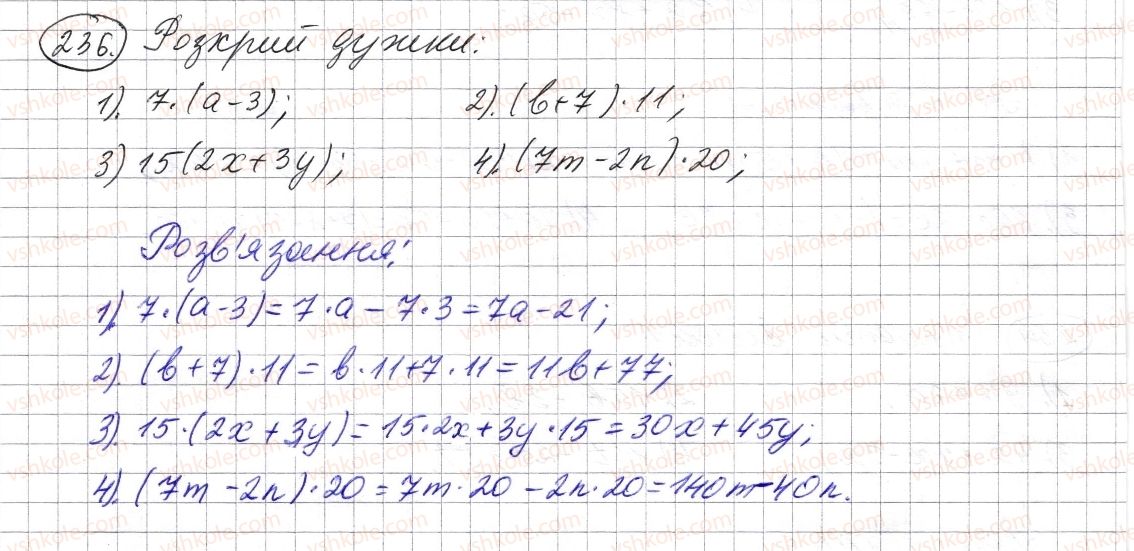 236. Розкрий дужки:
1). 7·(a-3); 2). (b+7)·11;
3) 15(2x+3y); 4). (7m-2n)·20;
Розв'язання:
1). 7·(a-3)=7·a-7·3=7a-21;
2). (b+7)·11=b·11+7·11=11b+77;
3). 15·(2x+3y)=15·2x+3y·15=30x+45y;
4). (7m-2n)·20=7m·20-2n·20=140m-40n.